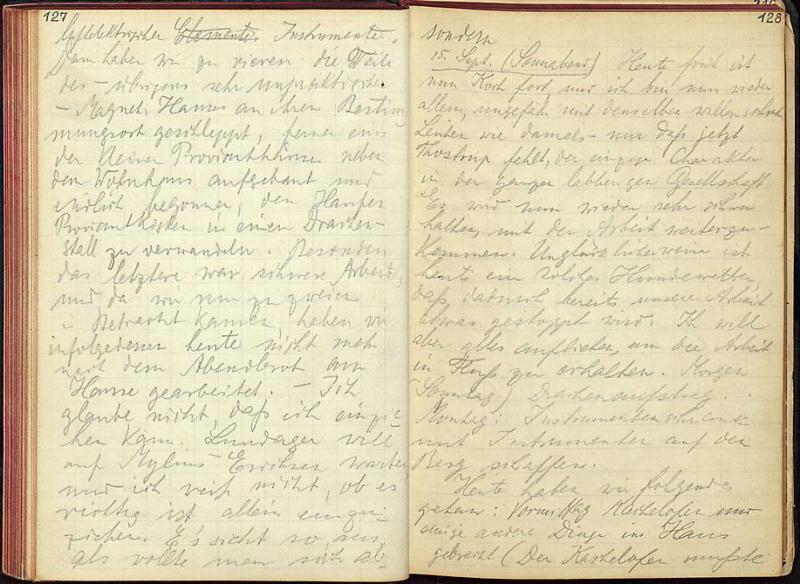 127
luftelektrischer Elemente Instrumente.
Dann haben wir zu vieren die Teile
des - übrigens sehr unpraktischen
- Magnet. Hauses an ihren Bestim
mungsort geschleppt, ferner eins
der kleinen Provianthäuser neben
dem Wohnhaus aufgebaut und
endlich begonnen, den Haufen
Proviantkisten in einen Drachen-
stall zu verwandeln. Besonders
das letztere war schwere Arbeit,
und da wir nun zu zweien
in Betracht kamen, haben wir
infolgedessen heute nicht mehr
nach dem Abendbrot am
Hause gearbeitet. - Ich
glaube nicht, daß ich einzie-
hen kann. Lundager will
auf Mylius Erichsen warten
und ich weiß nicht, ob es
richtig ist allein einzu
ziehen. Es sieht so aus,
als wollte man sich ab
128
sondern
15. Sept. (Sonnabend) Heute früh ist
nun Koch fort und ich bin nun wieder
allein, ungefähr mit denselben willen
Leuten wie damals - nur daß jetzt
Thostrup fehlt, der einzige Charakter
in der ganzen Gesellschaft
Es wird nun wieder sehr schwer
halten, mit der Arbeit weiterzu-
kommen. Unglücklicherweise ist
heute ein solches Hundewetter,
daß dadurch bereits unsere Arbeit
etwas gestoppt wird. Ich will
aber alles aufbieten, um die Arbeit
in Fluß zu erhalten. Morgen
(Sonntag) Drachenaufstieg.
Montag: Instrumentenschrank
mit Instrumenten auf den
Berg schaffen.
Heute haben wir folgendes
getan: Vormittag Kachelofen und
einige andere Dinge ins Haus
gebracht (Der Kachelofen mußte